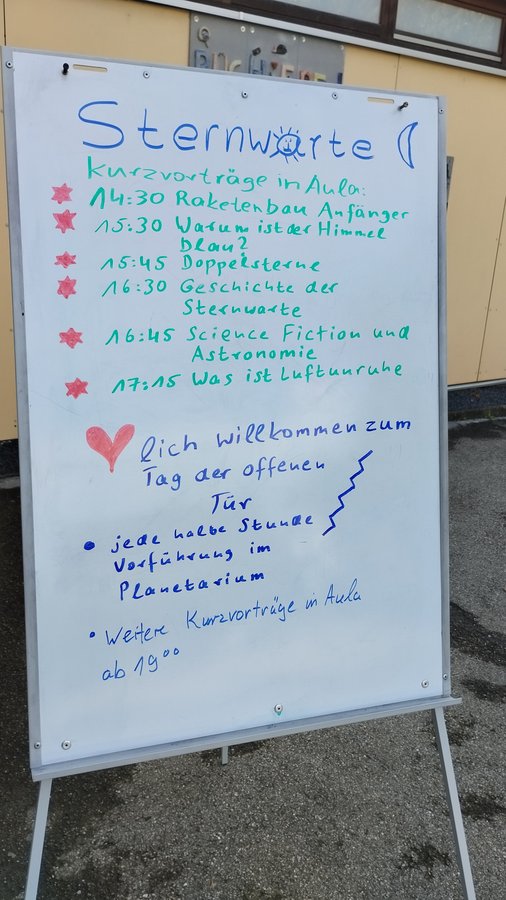 Sternwarte
Kurzvorträge in Aula:
14:30 Raketenbau Anfänger
15:30 Warum ist der Himmel
blau?
15:45 Doppelsterne
16:30 Geschichte der
Sternwarte
16:45 Science Fiction und
Astronomie
17:15 Was ist Luftunruhe
lich willkommen zum
Tag der offenen
Tür
• jede halbe Stunde
Vorführung im
Planetarium
• Weitere Kurzvorträge in Aula
ab 19⁰⁰